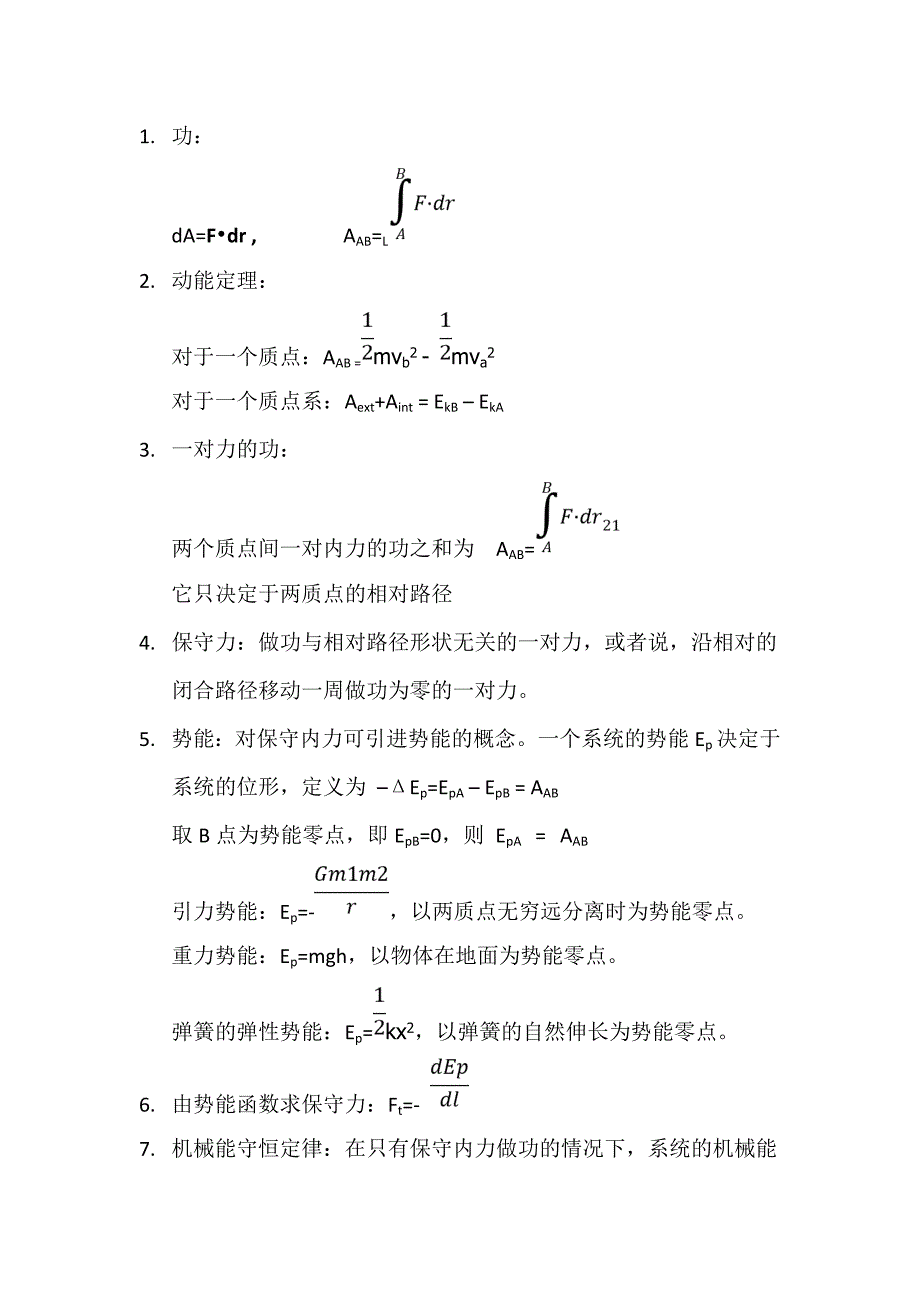 1. 功：
dA=F•dr ,  A_AB=_L∫_A^B F·dr
2. 动能定理：
对于一个质点：A_AB = 1/2 mv_b² - 1/2 mv_a²
对于一个质点系：A_ext+A_int = E_kB – E_kA
3. 一对力的功：
两个质点间一对内力的功之和为 A_AB=∫_A^B F·dr_21
它只决定于两质点的相对路径
4. 保守力：做功与相对路径形状无关的一对力，或者说，沿相对的
闭合路径移动一周做功为零的一对力。
5. 势能：对保守内力可引进势能的概念。一个系统的势能 E_p 决定于
系统的位形，定义为 –Δ E_p=E_pA – E_pB = A_AB
取 B 点为势能零点，即 E_pB=0，则 E_pA = A_AB
引力势能：E_p=- Gm1m2/r ，以两质点无穷远分离时为势能零点。
重力势能：E_p=mgh，以物体在地面为势能零点。
弹簧的弹性势能：E_p= 1/2 kx²，以弹簧的自然伸长为势能零点。
6. 由势能函数求保守力：F_t=- dEp/dl
7. 机械能守恒定律：在只有保守内力做功的情况下，系统的机械能